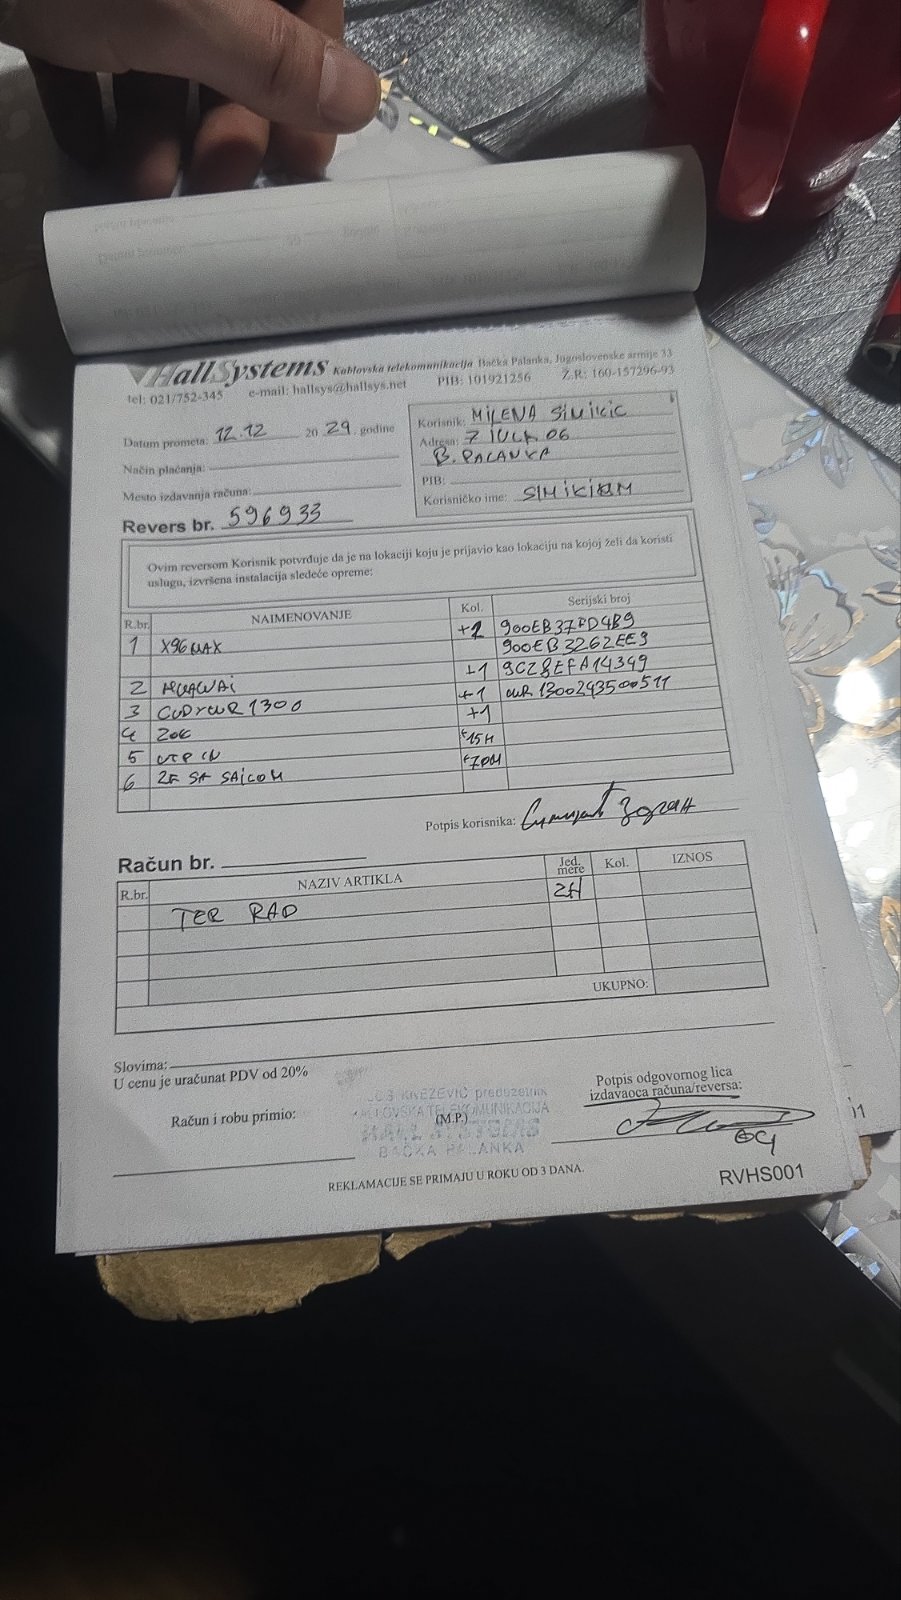 HallSystems Kablovska telekomunikacija Bačka Palanka, Jugoslovenske armije 33
tel: 021/752-345 e-mail: hallsys@hallsys.net PIB: 101921256 Ž.R: 160-157296-93
Datum prometa: 12.12 20 29. godine
Način plaćanja:
Mesto izdavanja računa:
Revers br. 596933
Korisnik: MILENA SIMIKIC
Adresa: 7 JULA 06
B. PALANKA
PIB:
Korisničko ime: SIMIKIćM
Ovim reversom Korisnik potvrđuje da je na lokaciji koju je prijavio kao lokaciju na kojoj želi da koristi
uslugu, izvršena instalacija sledeće opreme:
R.br. NAIMENOVANJE Kol. Serijski broj
1 X96 MAX +2 900EB37FD4B9
900EB3262EE9
2 HUAWAi +1 9C28EFA14349
3 CUDY WR 1300 +1 WR1300293500511
4 ZOE +1
5 UTP IN +15M
6 2F SA SAJCOM +70M
Potpis korisnika:
Račun br.
R.br. NAZIV ARTIKLA Jed. mere Kol. IZNOS
TER RAD 2H
UKUPNO:
Slovima:
U cenu je uračunat PDV od 20%
Račun i robu primio:
KNEŽEVIĆ preduzetnik
KABLOVSKA TELEKOMUNIKACIJA
(M.P.)
HALL SYSTEMS
BAČKA PALANKA
Potpis odgovornog lica
izdavaoca računa/reversa:
REKLAMACIJE SE PRIMAJU U ROKU OD 3 DANA.
RVHS001